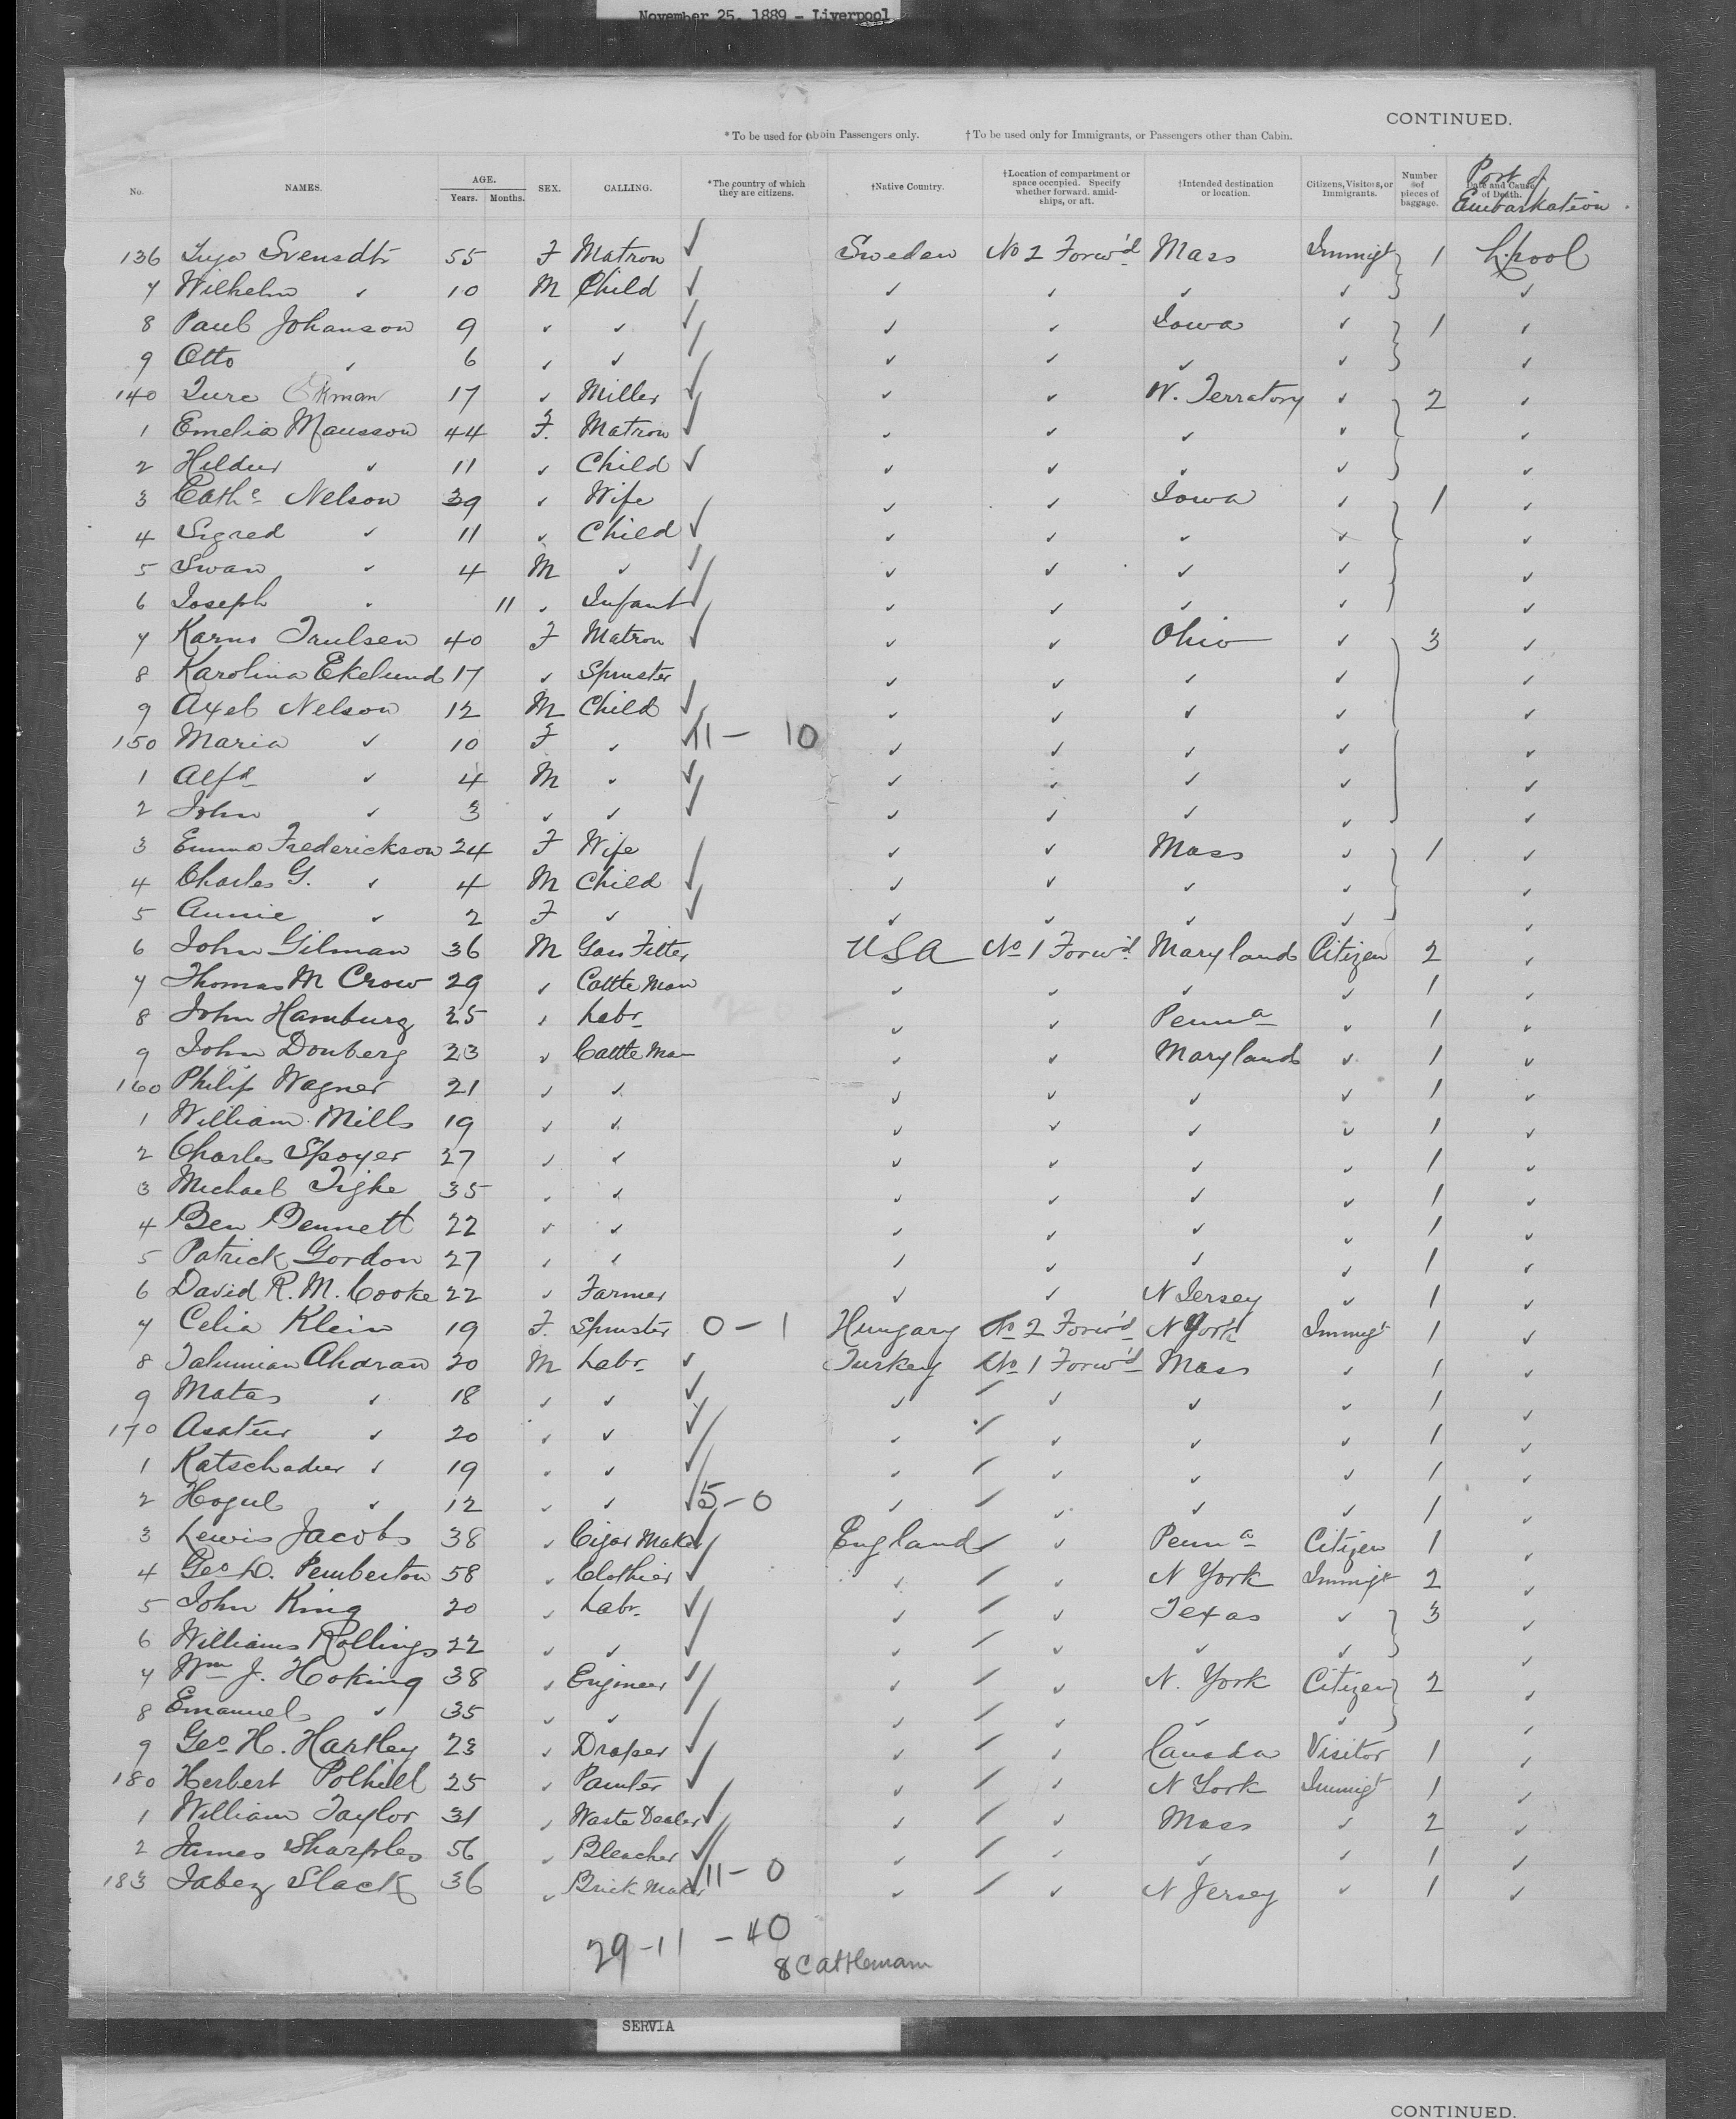 November 25, 1889 - Liverpool
CONTINUED.
* To be used for Cabin Passengers only. † To be used only for Immigrants, or Passengers other than Cabin.
No. NAMES. AGE. Years. Months. SEX. CALLING. *The country of which they are citizens. †Native Country. †Location of compartment or space occupied. Specify whether forward, amidships, or aft. †Intended destination or location. Citizens, Visitors, or Immigrants. Number of pieces of baggage. Date and Cause of Death. Port of Embarkation.
136 Inga Svensdtr 55 F Matron ✓ Sweden No 2 Forw'd Mass Immigt 1 L.pool
7 Wilhelm ✓ 10 M Child ✓ ✓ ✓ ✓ ✓ ✓
8 Paul Johanson 9 ✓ ✓ ✓ ✓ ✓ Iowa ✓ 1 ✓
9 Otto ✓ 6 ✓ ✓ ✓ ✓ ✓ ✓ ✓ ✓
140 Ture Okman 17 ✓ Miller ✓ ✓ ✓ W. Terratory ✓ 2 ✓
1 Emelia Mausson 44 F. Matron ✓ ✓ ✓ ✓ ✓ ✓
2 Hildur ✓ 11 ✓ Child ✓ ✓ ✓ ✓ ✓ ✓
3 Cathe Nelson 39 ✓ Wife ✓ ✓ Iowa ✓ 1 ✓
4 Sigred ✓ 11 ✓ Child ✓ ✓ ✓ ✓ ✓ ✓
5 Swan ✓ 4 M ✓ ✓ ✓ ✓ ✓ ✓ ✓
6 Joseph ✓ 11 ✓ Infant ✓ ✓ ✓ ✓ ✓ ✓
7 Karns Trulsen 40 F Matron ✓ ✓ ✓ Ohio ✓ 3 ✓
8 Karolina Ekelund 17 ✓ Spinster ✓ ✓ ✓ ✓ ✓
9 Axel Nelson 12 M Child ✓ ✓ ✓ ✓ ✓ ✓
150 Maria ✓ 10 F ✓ ✓ 11 - 10 ✓ ✓ ✓ ✓ ✓
1 Alfd ✓ 4 M ✓ ✓ ✓ ✓ ✓ ✓ ✓
2 John ✓ 3 ✓ ✓ ✓ ✓ ✓ ✓ ✓ ✓
3 Emma Frederickson 24 F Wife ✓ ✓ ✓ Mass ✓ 1 ✓
4 Charles G. ✓ 4 M Child ✓ ✓ ✓ ✓ ✓ ✓
5 Annie ✓ 2 F ✓ ✓ ✓ ✓ ✓ ✓ ✓
6 John Gilman 36 M Gas Fitter USA No 1 Forw'd Maryland Citizen 2 ✓
7 Thomas M Crow 29 ✓ Cattle Man ✓ ✓ ✓ ✓ 1 ✓
8 John Hamburg 25 ✓ Labr ✓ ✓ Penna ✓ 1 ✓
9 John Donberg 23 ✓ Cattle Man ✓ ✓ Maryland ✓ 1 ✓
160 Philip Wagner 21 ✓ ✓ ✓ ✓ ✓ ✓ 1 ✓
1 William Mills 19 ✓ ✓ ✓ ✓ ✓ ✓ 1 ✓
2 Charles Spoyer 27 ✓ ✓ ✓ ✓ ✓ ✓ 1 ✓
3 Michael Tighe 35 ✓ ✓ ✓ ✓ ✓ ✓ 1 ✓
4 Ben Bennett 22 ✓ ✓ ✓ ✓ ✓ ✓ 1 ✓
5 Patrick Gordon 27 ✓ ✓ ✓ ✓ ✓ ✓ 1 ✓
6 David R. M. Cooke 22 ✓ Farmer ✓ ✓ N Jersey ✓ 1 ✓
7 Celia Klein 19 F. Spinster 0 - 1 Hungary No 2 Forw'd N York Immigt 1 ✓
8 Talumian Aharan 20 M Labr ✓ Turkey No 1 Forw'd Mass ✓ 1 ✓
9 Matas ✓ 18 ✓ ✓ ✓ ✓ ✓ ✓ ✓ 1 ✓
170 Asatur ✓ 20 ✓ ✓ ✓ ✓ ✓ ✓ ✓ 1 ✓
1 Katschadur ✓ 19 ✓ ✓ ✓ ✓ ✓ ✓ ✓ 1 ✓
2 Hogul ✓ 12 ✓ ✓ ✓ 5 - 0 ✓ ✓ ✓ ✓ 1 ✓
3 Lewis Jacobs 38 ✓ Cigar Maker ✓ England ✓ Penna Citizen 1 ✓
4 Geo D. Pemberton 58 ✓ Clothier ✓ ✓ ✓ N York Immigt 2 ✓
5 John King 20 ✓ Labr ✓ ✓ ✓ Texas ✓ 3 ✓
6 Williams Rollings 22 ✓ ✓ ✓ ✓ ✓ ✓ ✓ ✓
7 Wm J. Hoking 38 ✓ Engineer ✓ ✓ ✓ N. York Citizen 2 ✓
8 Emanuel ✓ 35 ✓ ✓ ✓ ✓ ✓ ✓ ✓
9 Geo H. Hartley 23 ✓ Draper ✓ ✓ ✓ Canada Visitor 1 ✓
180 Herbert Polhill 25 ✓ Painter ✓ ✓ ✓ N York Immigt 1 ✓
1 William Taylor 31 ✓ Waste Dealer ✓ ✓ ✓ Mass ✓ 2 ✓
2 James Sharples 56 ✓ Bleacher ✓ ✓ ✓ ✓ ✓ 1 ✓
183 Jabez Slack 36 ✓ Brick Maker ✓ 11 - 0 ✓ ✓ N Jersey ✓ 1 ✓
29 - 11 - 40
8 Cattlemam
SERVIA
CONTINUED.